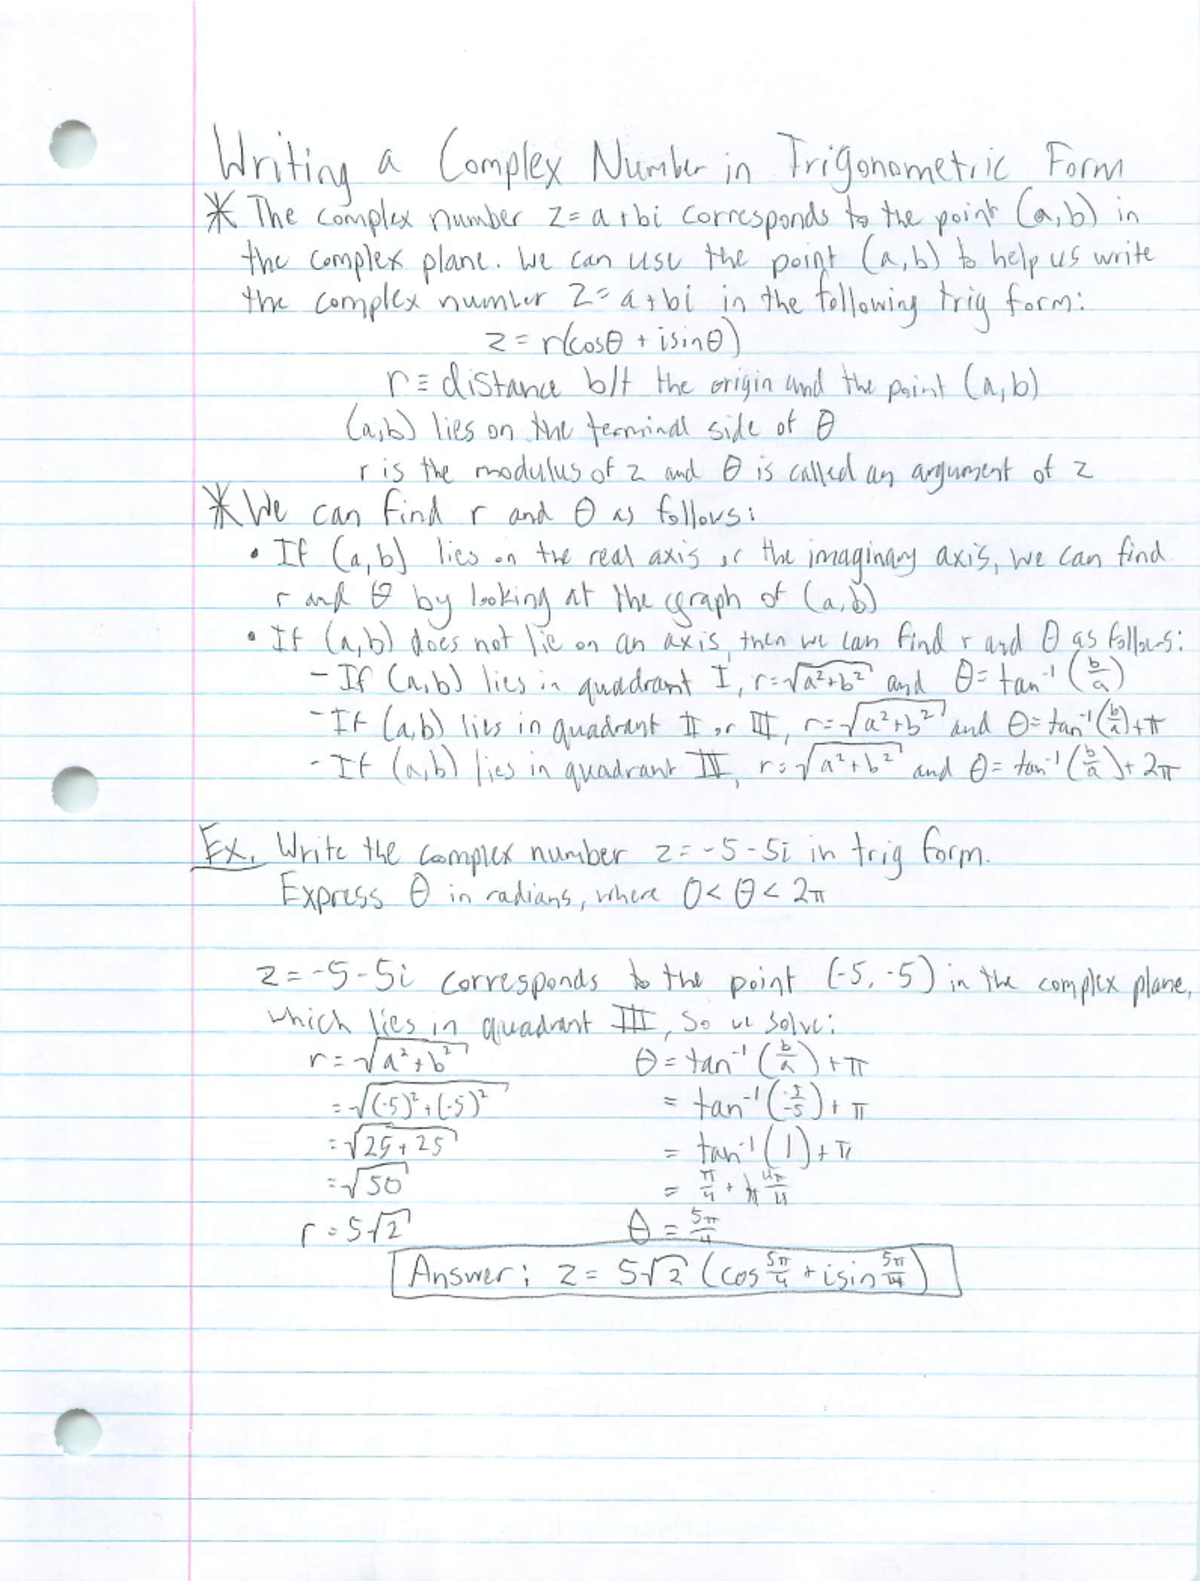 Writing a Complex Number in Trigonometric Form
* The complex number z = a+bi corresponds to the point (a,b) in
the complex plane. We can use the point (a,b) to help us write
the complex number z = a+bi in the following trig form:
z = r(cosθ + isinθ)
r ≡ distance b/t the origin and the point (a,b)
(a,b) lies on the terminal side of θ
r is the modulus of z and θ is called an argument of z
* We can find r and θ as follows:
• If (a,b) lies on the real axis or the imaginary axis, we can find
r and θ by looking at the graph of (a,b)
• If (a,b) does not lie on an axis, then we can find r and θ as follows:
- If (a,b) lies in quadrant I, r=√(a²+b²) and θ= tan⁻¹(b/a)
- If (a,b) lies in quadrant II or III, r=√(a²+b²) and θ= tan⁻¹(b/a)+π
- If (a,b) lies in quadrant IV, r=√(a²+b²) and θ= tan⁻¹(b/a)+2π
Ex. Write the complex number z = -5-5i in trig form.
Express θ in radians, where 0<θ<2π
z = -5-5i corresponds to the point (-5,-5) in the complex plane,
which lies in quadrant III, so we solve:
r = √(a²+b²) θ = tan⁻¹(b/a)+π
= √((-5)²+(-5)²) = tan⁻¹(-5/-5)+π
= √(25+25) = tan⁻¹(1)+π
= √50 = π/4 + 4π/4
r = 5√2 θ = 5π/4
Answer: z = 5√2 (cos 5π/4 + isin 5π/4)